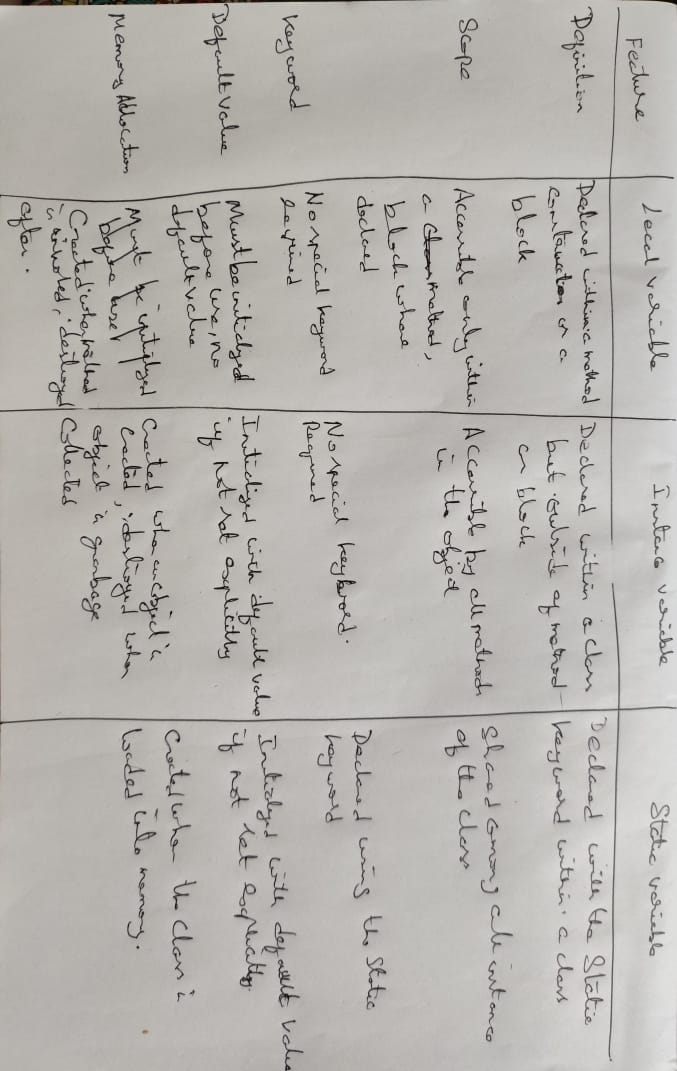 Feature
Local variable
Instance variable
Static variable
Definition
Declared within a method
constructor or a
block
Declared within a class
but outside of method
or block
Declared with the Static
keyword within a class
Scope
Accessible only within
a method,
block where
declared
Accessible by all methods
in the object
Shared among all instances
of the class
Keyword
No special keyword
required
No special keyword.
Required
Declared using the Static
keyword
Default value
Must be initialized
before use, no
default value
Initialized with default value
if not set explicitly
Initialized with default value
if not set explicitly.
Memory Allocation
Must be initialized
before use
Created when method
is invoked, destroyed
after.
Created when an object is
created, destroyed when
object is garbage
Collected
Created when the class is
loaded into memory.